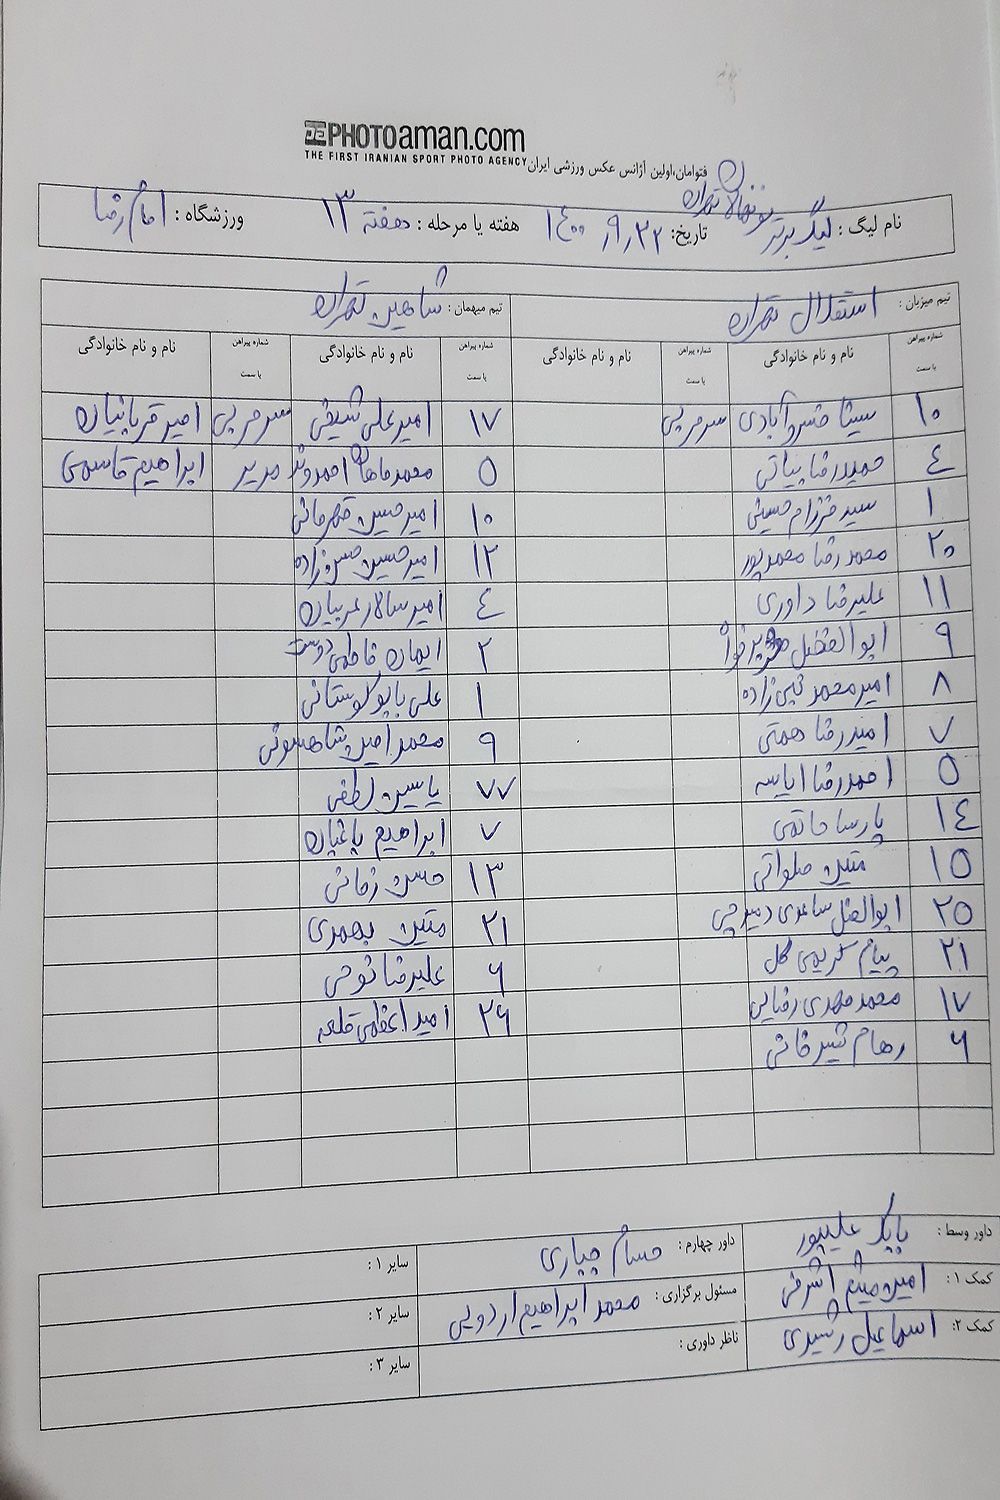 PHOTOaman.com
THE FIRST IRANIAN SPORT PHOTO AGENCY
فتوامان،اولین آژانس عکس ورزشی ایران
نام لیگ : لیگ برتر نونهالان تهران تاریخ: ۱۴۰۰٫۹٫۲۲ هفته یا مرحله : هفته ۱۳ ورزشگاه : امام رضا
تیم میزبان : استقلال تهران تیم میهمان : شاهین تهران
شماره پیراهن یا سمت نام و نام خانوادگی شماره پیراهن یا سمت نام و نام خانوادگی شماره پیراهن یا سمت نام و نام خانوادگی شماره پیراهن یا سمت نام و نام خانوادگی
۱۰ سینا خسروآبادی سرمربی ۱۷ امیرعلی شیخی سرمربی امیر قربانیان
۴ حمیدرضا بیاتی ۵ محمدماهان احمدوند مدیر ابراهیم قاسمی
۱ سید فرزام حسینی ۱۰ امیرحسین قهرمانی
۲۰ محمدرضا محمدپور ۱۲ امیرحسین حسن زاده
۱۱ علیرضا داوری ۴ امیرسالار عربیان
۹ ابوالفضل ۲ ایمان فاطمی دوست
۸ امیرمحمد نبی زاده ۱ علی بابوکوستانی
۷ امیررضا همتی ۹ محمدامین شاهسونی
۵ احمدرضا ۷۷ یاسین لطفی
۱۴ پارسا حاتمی ۷ ابراهیم باغبان
۱۵ متین صلواتی ۱۳ حسن زمانی
۲۵ ابوالفضل ساعدی ۲۱ متین بهمدی
۲۱ پیام کریمی گل ۶ علیرضا نوحی
۱۷ محمدمهدی رضایی ۲۶ امید اعظمی قلعه
۶ رهام شیرخانی
داور وسط : بابک علیپور داور چهارم : حسام چپاری سایر ۱ :
کمک ۱ : امین میثم اشرفی مسئول برگزاری : محمد ابراهیم اردویی سایر ۲ :
کمک ۲: اسماعیل رشیدی ناظر داوری : سایر ۳ :